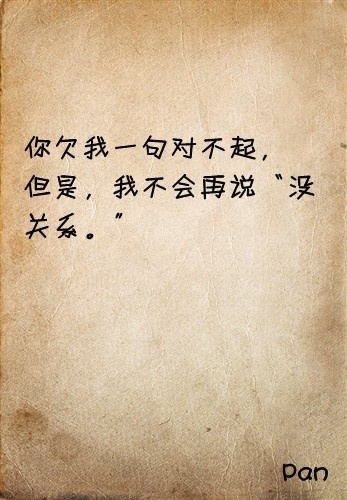 你欠我一句对不起，
但是，我不会再说“没
关系。”
pan